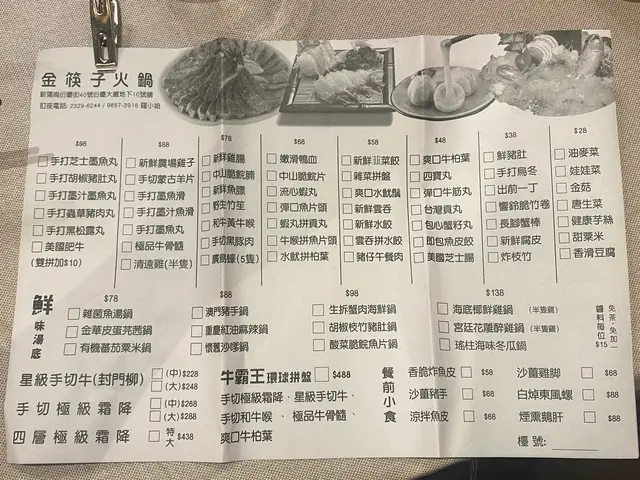 金筷子火鍋
新蒲崗衍慶街40號衍慶大廈地下10號舖
訂座電話: 2329-6244 / 9857-3918 羅小姐
$98
手打芝士墨魚丸
手打胡椒豬肚丸
手打墨汁墨魚丸
手打蟲草豬肉丸
手打黑松露丸
美國肥牛
(雙拼加$10)
$88
新鮮農場雞子
手切蒙古羊片
手打墨魚滑
手打墨汁魚滑
手打墨魚丸
極品牛骨髓
清遠雞(半隻)
$78
新鮮雞腸
中山脆鯇腩
新鮮魚膘
野生竹笙
和牛黃牛喉
手切黑豚肉
廣島蠔(5隻)
$68
嫩滑鴨血
中山脆鯇片
流心蝦丸
彈口魚片頭
蝦丸拼貢丸
牛喉拼魚片頭
水魷拼柏葉
$58
新鮮韮菜餃
雜菜拼盤
爽口水魷鬚
新鮮雲吞
新鮮水餃
雲吞拼水餃
豬仔午餐肉
$48
爽口牛柏葉
四寶丸
彈口牛筋丸
台灣貢丸
包心蟹籽丸
即包魚皮餃
美國芝士腸
$38
鮮豬肚
手打烏冬
出前一丁
響鈴脆竹卷
長腳蟹棒
新鮮腐皮
炸枝竹
$28
油麥菜
娃娃菜
金菇
唐生菜
健康芋絲
甜粟米
香滑豆腐
鮮味湯底
$78
雜菌魚湯鍋
金華皮蛋芫茜鍋
有機蕃茄粟米鍋
$88
澳門豬手鍋
重慶紅油麻辣鍋
懷舊沙嗲鍋
$98
生拆蟹肉海鮮鍋
胡椒枝竹豬肚鍋
酸菜脆鯇魚片鍋
$138
海底椰鮮雞鍋 (半隻雞)
宮廷花雕醉雞鍋 (半隻雞)
瑤柱海味冬瓜鍋
免茶‧免加一
醬料每位
$15
星級手切牛(封門柳)
(中)$228
(大)$248
手切極級霜降
(中)$268
(大)$288
四層極級霜降
特大 $438
牛霸王環球拼盤 $488
手切極級霜降、星級手切牛、
手切和牛喉、極品牛骨髓、
爽口牛柏葉
餐前小食
香脆炸魚皮 $58
沙薑豬手 $68
涼拌魚皮 $68
沙薑雞脚 $68
白焯東風螺 $88
煙熏鵝肝 $88
檯號: